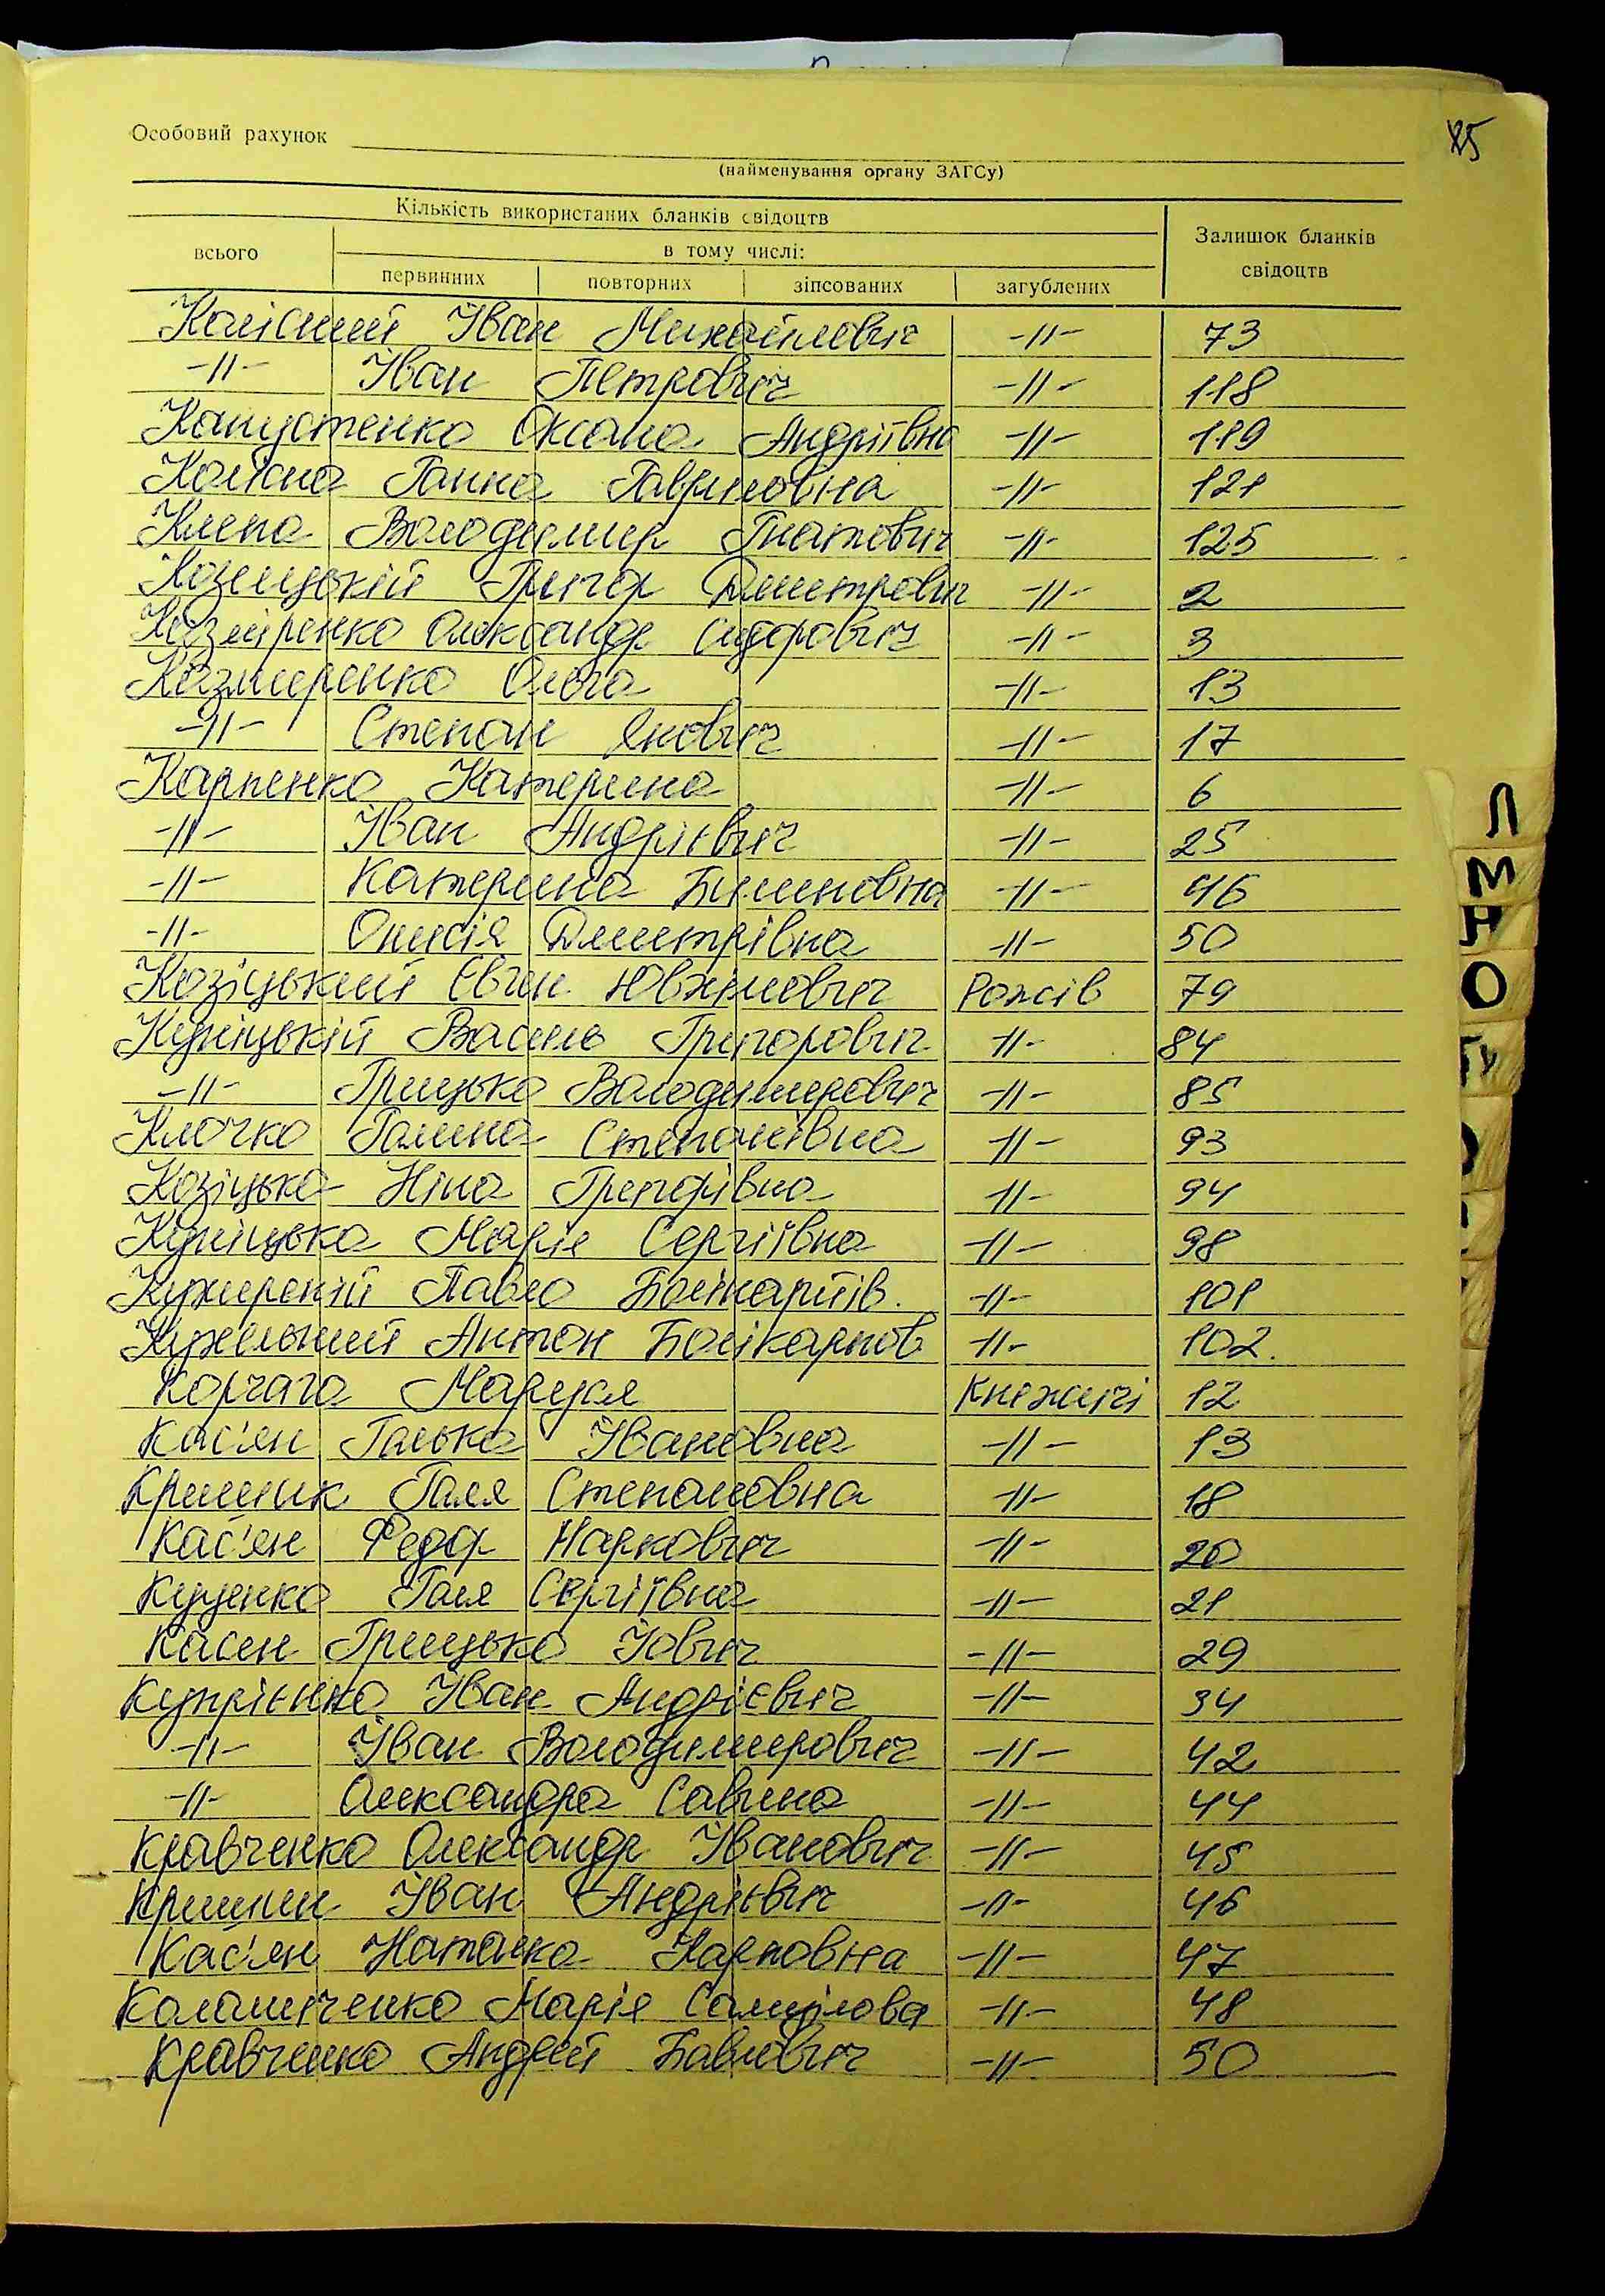 85
Особовий рахунок
(найменування органу ЗАГСу)
Кількість використаних бланків свідоцтв
Залишок бланків свідоцтв
всього
в тому числі:
первинних повторних зіпсованих загублених
Колісний Іван Михайлович -//- 73
-//- Іван Петрович -//- 118
Капустенко Оксана Андріївна -//- 119
Колісна Ганна Гавриловна -//- 121
Клепа Володимир Гнатович -//- 125
Козицькій Григор Дмитрович -//- 2
Казміренко Олександр Сидорович -//- 3
Казмиренко Ольга -//- 13
-//- Степан Якович -//- 17
Карпенко Катерина -//- 6
-//- Іван Андрієвич -//- 25
-//- Катерина Билиповна -//- 46
-//- Онисія Дмитрівна -//- 50
Козіцький Євген Ювхимович Рожів 79
Куніцькій Василь Григорович -//- 84
-//- Грицько Володимирович -//- 85
Клочко Галина Степанівна -//- 93
Козіцька Ніна Григорівна -//- 94
Куніцька Марія Сергіївна -//- 98
Павло -//- 101
Кужельний Антон Болікарпов -//- 102.
Корчага Маруся Княжичі 12
Кас'ян Галька Івановна -//- 13
Галя Степановна -//- 18
Кас'ян Федор Маркович -//- 20
Куценко Галя Сергіївна -//- 21
Касян Грицько Йович -//- 29
Купрієнко Іван Андрієвич -//- 34
-//- Іван Володимирович -//- 42
-//- Олександра Савична -//- 44
Кравченко Олександр Іванович -//- 45
Іван Андрієвич -//- 46
Кас'ян Наталка Карповна -//- 47
Коломиченко Марія Самуілова -//- 48
Кравченко Андрей Бавлович -//- 50
Л
М
Н
О